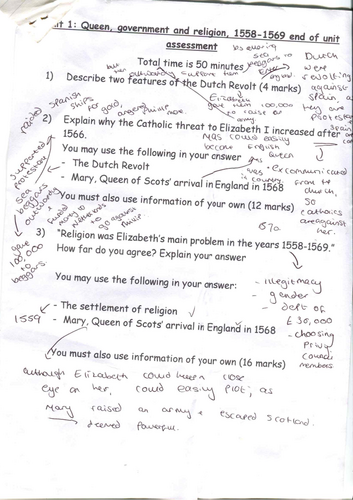 it 1: Queen, government and religion, 1558-1569 end of unit
assessment
Total time is 50 minutes
1) Describe two features of the Dutch Revolt (4 marks)
2) Explain why the Catholic threat to Elizabeth I increased after
1566.
You may use the following in your answer
- The Dutch Revolt
- Mary, Queen of Scots' arrival in England in 1568
You must also use information of your own (12 marks)
3) "Religion was Elizabeth's main problem in the years 1558-1569."
How far do you agree? Explain your answer
You may use the following in your answer:
- The settlement of religion
- Mary, Queen of Scots' arrival in England in 1568
You must also use information of your own (16 marks)
Dutch
were
revolting
against
Spain
they are
Elizabeth
100,000
to cause
MQS could easily
become English
Queen
excommunicated
from the
church,
so
catholics
are against
her.
1570
raided Spanish
ships
for gold,
supported
sea
beggars
gave
100,000
to
beggars
1559
- illegitimacy
- gender
- debt of
£30,000
- choosing
Privy
council
members
although Elizabeth could keep close
eye on her, could easily plot, as
Mary raised an army + escaped Scotland.
deemed powerful.